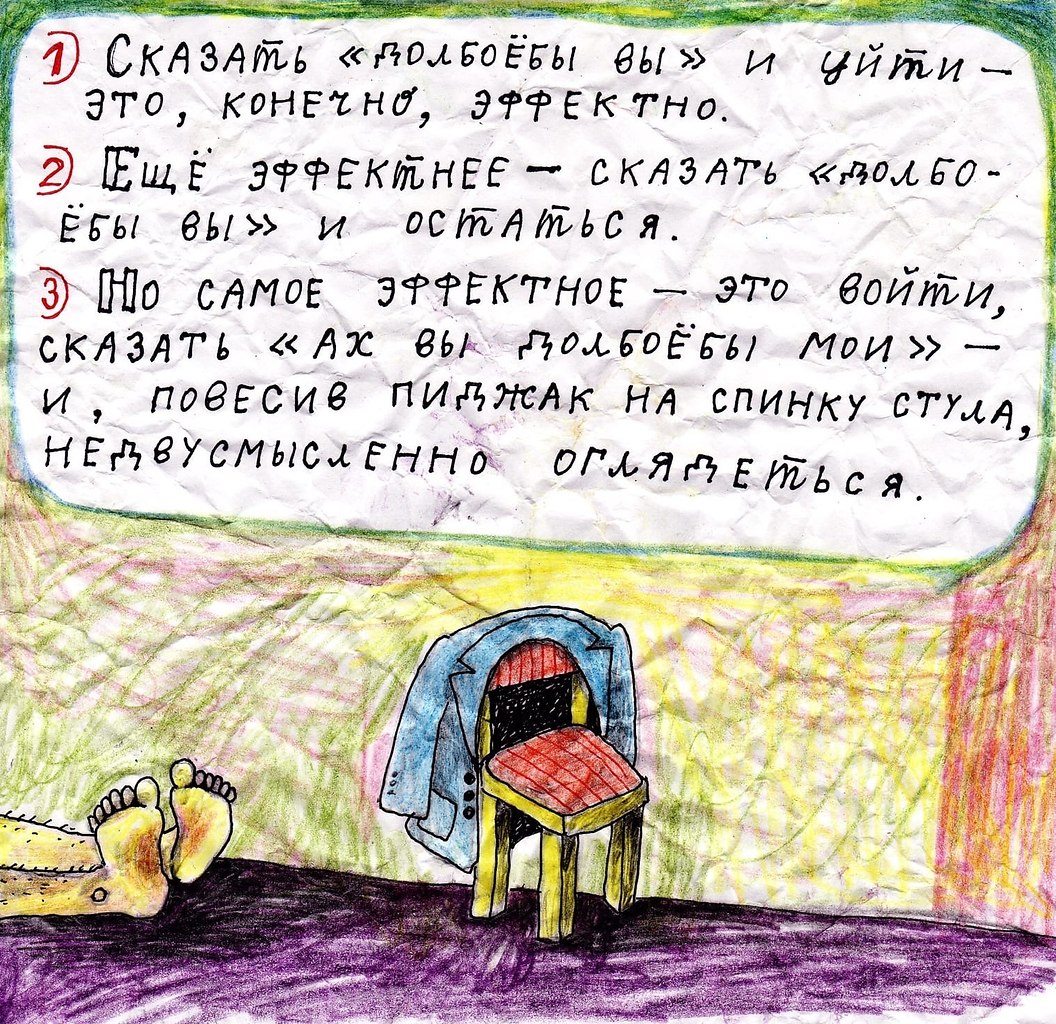 1) Сказать «долбоёбы вы» и уйти —
это, конечно, эффектно.
2) Ещё эффектнее — сказать «долбо-
ёбы вы» и остаться.
3) Но самое эффектное — это войти,
сказать «Ах вы долбоёбы мои» —
и, повесив пиджак на спинку стула,
недвусмысленно оглядеться.